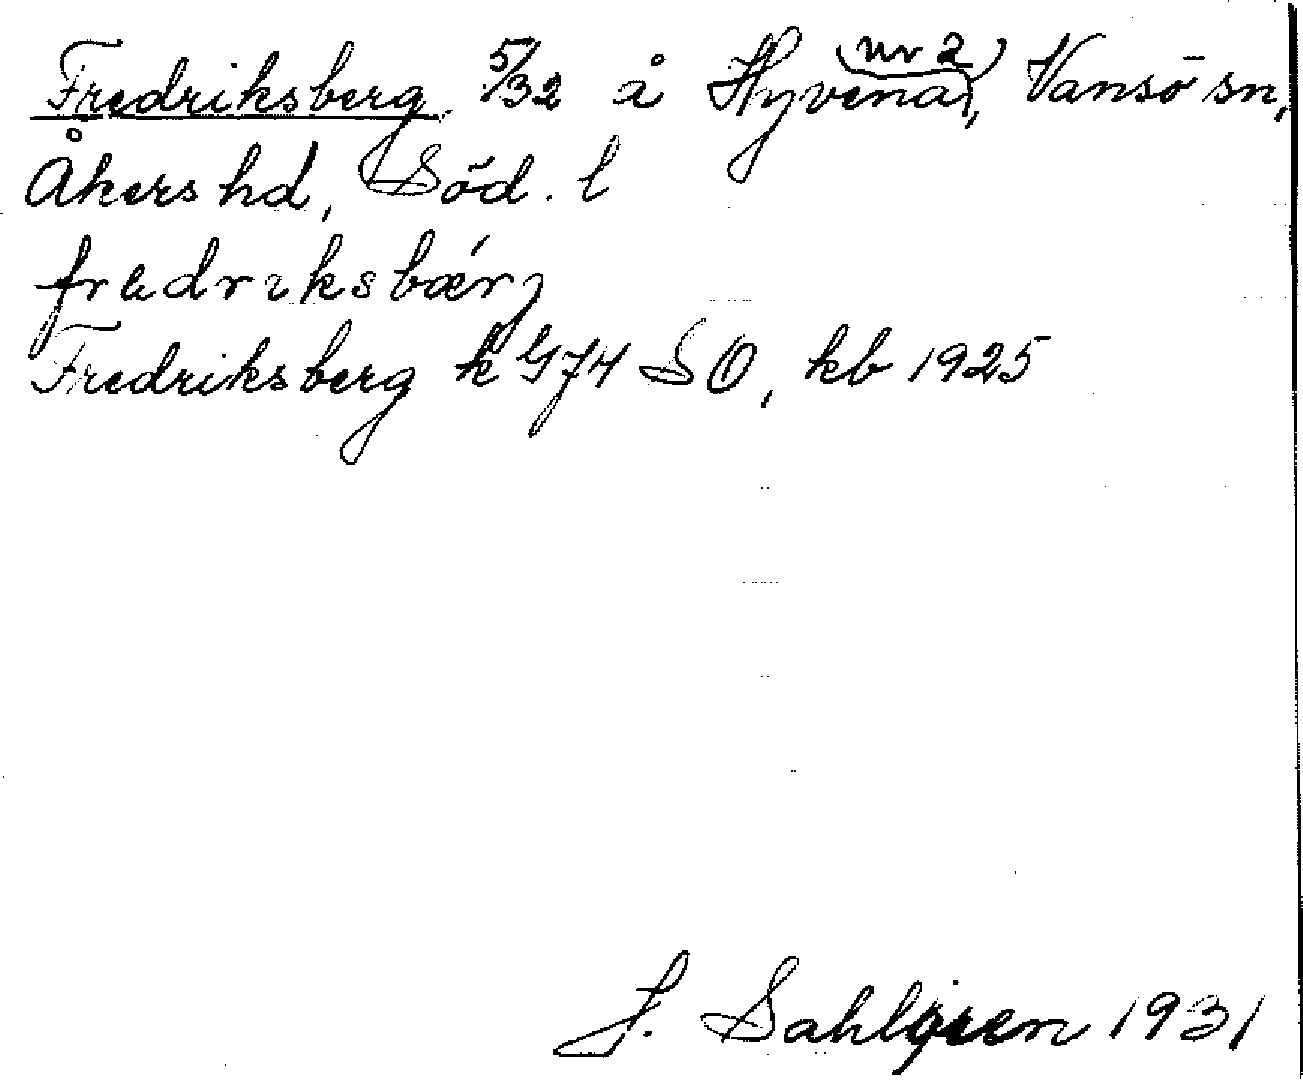 Fredriksberg 5/32 å Hyvena (nr 2), Vansö sn,
Åkers hd, Söd. l
fradriksbær
Fredriksberg k G74 SO, kb 1925
J. Sahlgren 1931